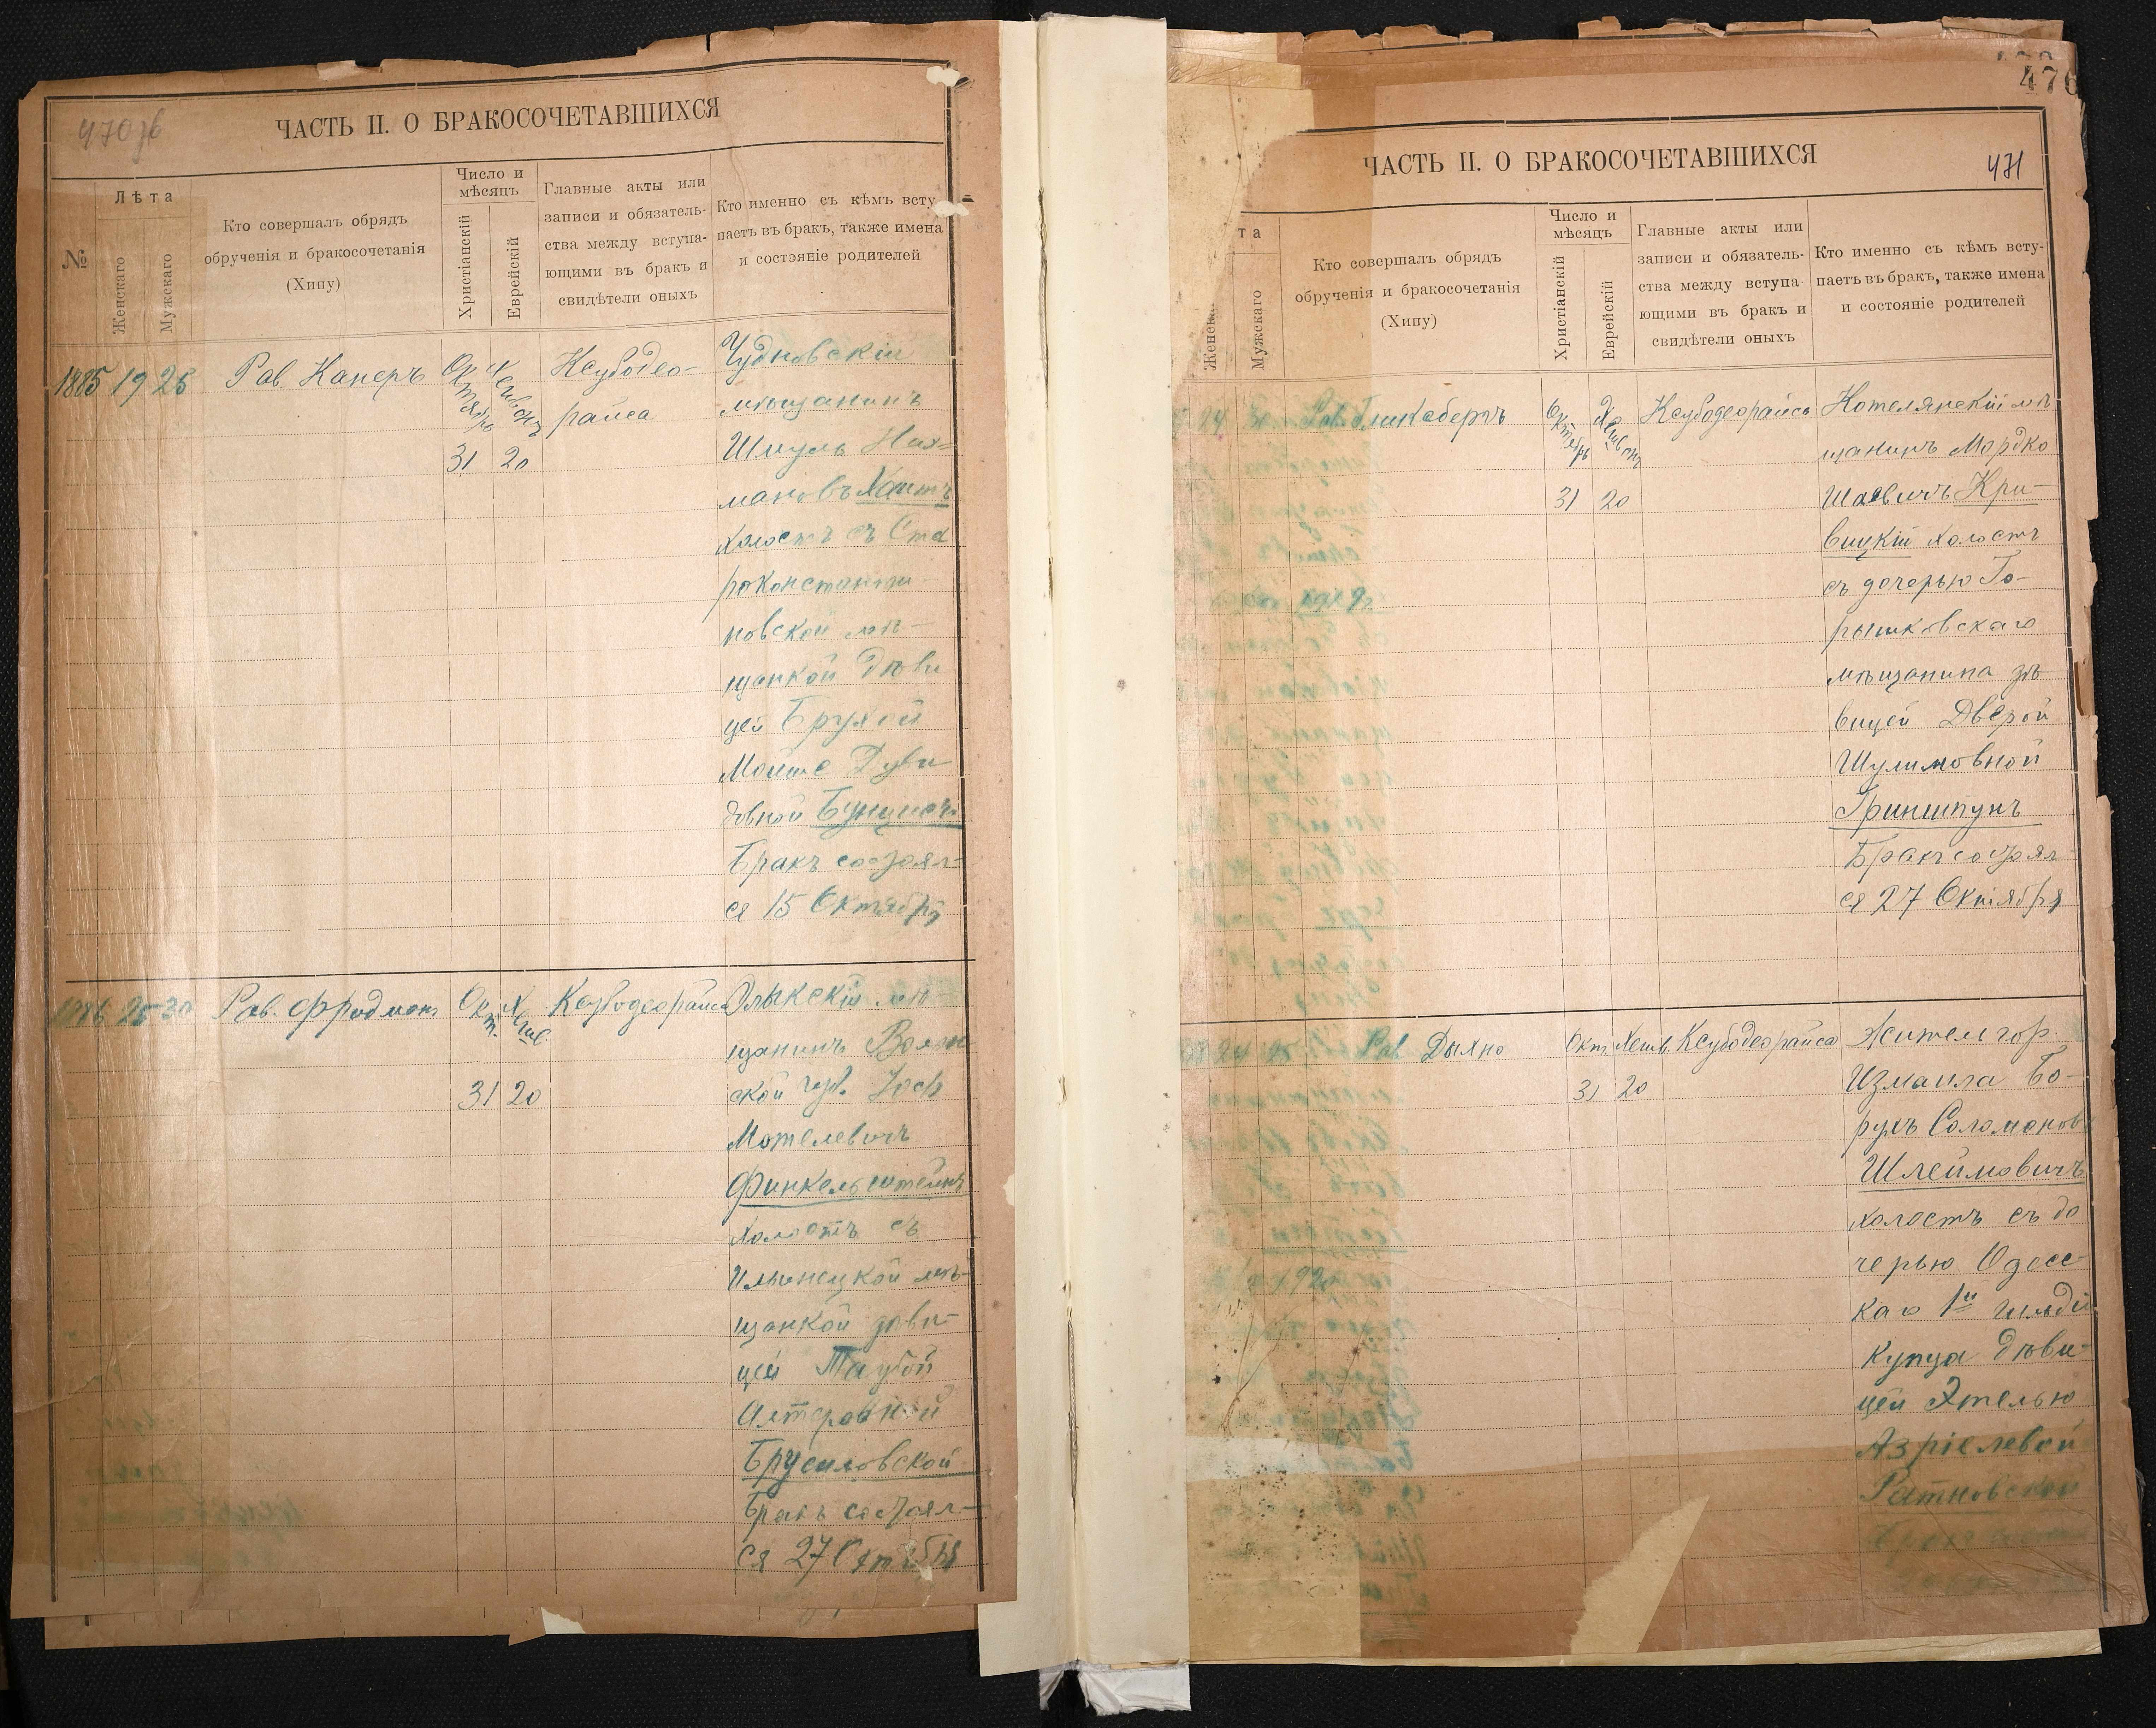 470 об
ЧАСТЬ II. О БРАКОСОЧЕТАВШИХСЯ
№
Лѣта
Женскаго
Мужскаго
Кто совершалъ обрядъ
обрученія и бракосочетанія
(Хипу)
Число и
мѣсяцъ
Христіанскій
Еврейскій
Главные акты или
записи и обязатель-
ства между вступа-
ющими въ бракъ и
свидѣтели оныхъ
Кто именно съ кѣмъ всту-
паетъ въ бракъ, также имена
и состояніе родителей
1885 19 25
Рав. Канеръ
Октябрь
31 20
Ксубодео-
райса
Чудновскій
мѣщанинъ
Шмуль Нах-
мановъ Хаитъ
холостъ съ Ста
роконстанти
новской мѣ-
щанкой дѣви
цей Брухой
Мойше Дуви
довной
Бракъ состоял-
ся 15 Октября
1886 25 30
Рав. Фридманъ
Окт. Хешв.
31 20
Ксубодеорайса
Олыкскій мѣ
щанинъ Волын
ской губ. Іосъ
Мотелевичъ
Финкельштейнъ
холостъ съ
Ильинецкой мѣ-
щанкой дѣви-
цей Таубой
Алтеровной
Брусиловской
Бракъ состоял-
ся 27 Октября
476
471
ЧАСТЬ II. О БРАКОСОЧЕТАВШИХСЯ
та
Женска
Мужскаго
Кто совершалъ обрядъ
обрученія и бракосочетанія
(Хипу)
Число и
мѣсяцъ
Христіанскій
Еврейскій
Главные акты или
записи и обязатель-
ства между вступа-
ющими въ бракъ и
свидѣтели оныхъ
Кто именно съ кѣмъ всту-
паетъ въ бракъ, также имена
и состояніе родителей
24
Рав. Гликсбергъ
Октябрь Хешвонъ
31 20
Ксубодеорайса
Котелянскій мѣ
щанинъ Мордко
Шаевичъ Кри-
вицкій холостъ
съ дочерью Го-
рышковскаго
мѣщанина дѣ
вицей Дверой
Шулимовной
Гриншпунъ
Бракъ состоял-
ся 27 Октября
24 25
Рав Дыхно
Окт. Хешв.
31 20
Ксубодеорайса
Жител гор.
Измаила Бо-
рухъ Соломонов
Шлеймовичъ
холостъ съ до
черью Одесс-
каго 1й гильдіи
купца дѣви-
цей Этелью
Азріелевой
Ратновской